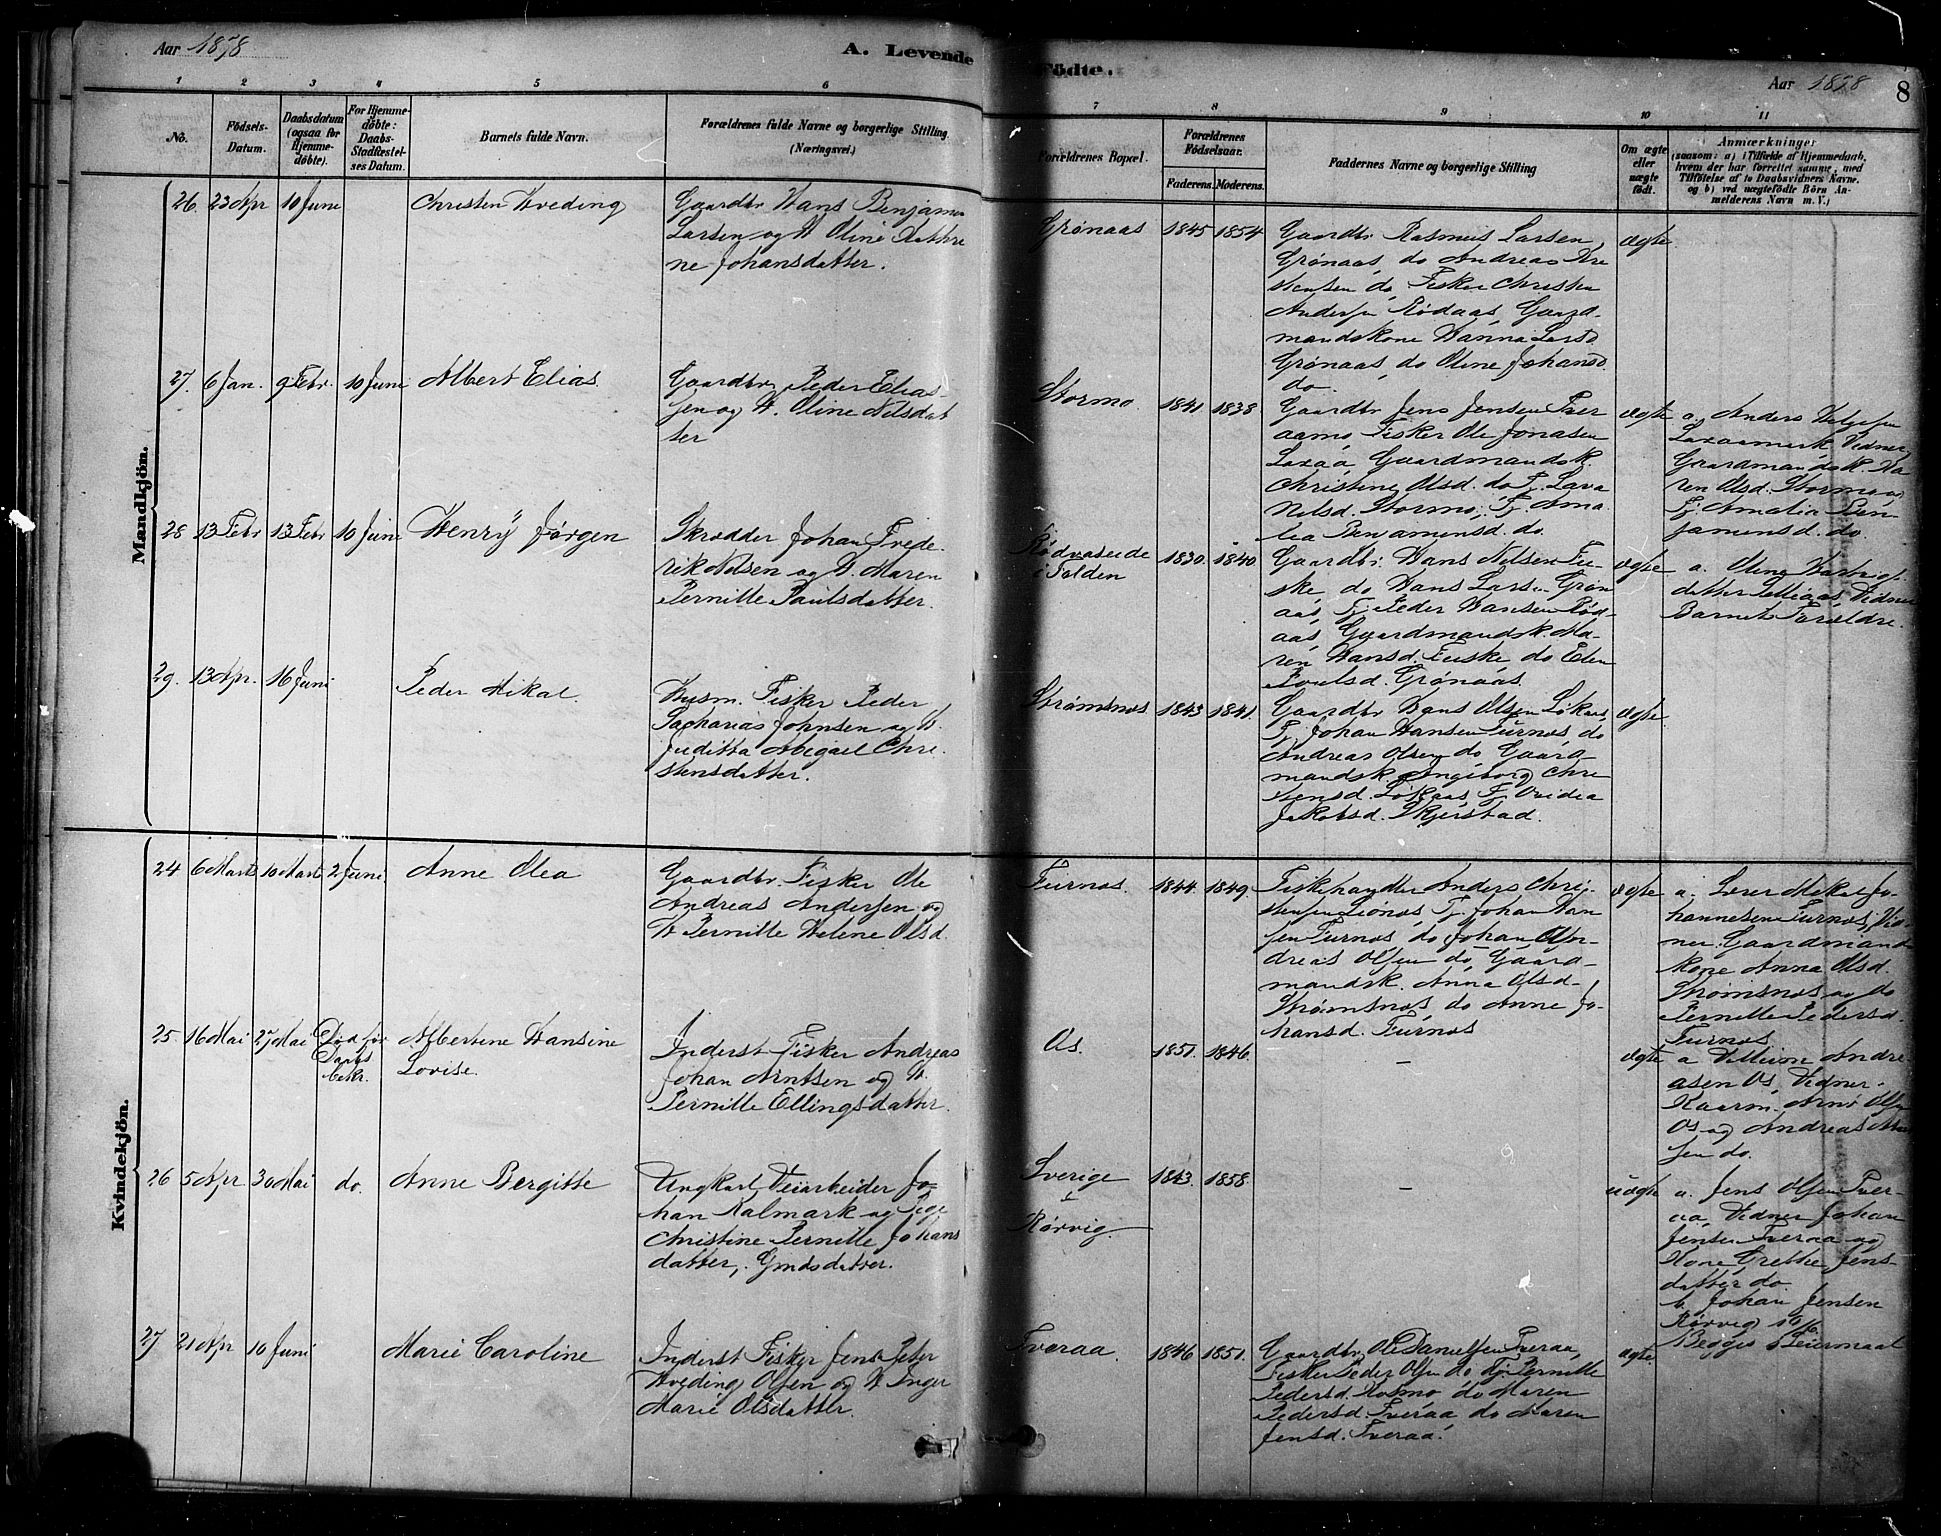 Aar 1878
A. Levende
Födte.
Aar 1878
8
1 2 3 4 5 6 7 8 9 10 11
No.
Födsels-
Datum.
Daabsdatum
(ogsaa for
Hjemme-
döbte).
For Hjemme-
döbte:
Daabs-
Stadfæstel-
ses Datum.
Barnets fulde Navn.
Forældrenes fulde Navne og borgerlige Stilling.
(Næringsvei.)
Forældrenes Bopæl.
Forældrenes
Födselsaar.
Faderens. Moderens.
Faddernes Navne og borgerlige Stilling
Om ægte
eller
uægte
födt.
Anmærkninger
(saasom: a) i Tilfælde af Hjemmedaab,
hvem der har forrettet samme, med
Tilföielse af to Daabsvidners Navne,
og b) ved uægtefödte Börn An-
melderens Navn m. V.)
Mandkjön.
26. 23 Apr 10 Juni Christen Hveding
Gaardbr Hans Benjamin
Larsen og H. Oline Kathri
ne Johansdatter.
Grønaas 1845 1854
Gaardbr. Rasmus Larsen
Grønaas, do Andreas Kri
stensen do, Fisker Christen
Andersen Rødaas, Gaard-
mandskone Hanna Larsd.
Grønaas, do Oline Johansd.
do
ægte
27. 6 Jan. 9 Febr. 10 Juni Albert Elias.
Gaardbr. Peder Elias-
sen og H. Oline Nilsdat
ter
Stormo. 1841. 1838
Gaardbr Jens Jensen Tver
aamo, Fisker Ole Jonasen
Laxaa, Gaardmandsk.
Christine Olsd. do Pg. Lava
Nilsd. Stormo, Pg. Ama
lea Benjamensd. do.
ægte
a. Anders Helgesen
Laxaamark, Vidner,
Gaardmandsk. Ka
ren Olsd. Stormo og
Pg. Amalia Ben-
jamensd. do.
28 13 Febr 13 Febr 10 Juni Henrÿ Jørgen
Skrædder Johan Frede
rik Nilsen og H. Maren
Pernille Paulsdatter.
Rødvaseide
i Folden
1830. 1840.
Gaardbr. Hans Nilsen Fu-
ske, do Hans Larsen Grøn
aas, Pg. Peder Hansen Rød-
aas, Gaardmandsk. Ma-
ren Hansd. Fuske, do Elen
Poulsd. Grønaas
ægte
a. Oline Hartvigs
datter Lilleaas, Vidner
Barnets Forældre.
29. 13 Apr. 16 Juni Peder Mikal.
Husm. Fisker Peder
Zacharias Johnsen og H.
Juditta Abigael Chri
stensdatter.
Strømsnes 1843 1841.
Gaardbr Hans Olsen Løkaas,
Pg. Johan Hansen Furnes, do
Andreas Olsen do Gaard-
mandsk. Ingeborg Chri
stensd. Løkaas Pg.
Jakobsd. Skjerstad.
ægte
Kvindekjön.
24 6 Marts 10 Marts 2 Juni. Anne Olea
Gaardbr. Fisker Ole
Andreas Andersen og
H Pernille Helene Olsd.
Furnes. 1844. 1849.
Fiskehandler Anders Chri-
stensen , Pg. Johan Han
sen Furnes, do Johan An-
dreas Olsen do, Gaard-
mandsk. Anna Olsd.
Strømsnes do Anne Jo-
hansd. Furnes
ægte
a. Lærer Mikal Jo-
hannesen Furnes, Vid-
ner. Gaardmands
kone Anna Olsd.
Strømsnes og do
Pernille Pedersd.
Furnes
25 16 Mai 27 Mai Død før
Daabs
bekr.
Albertine Hansine
Lovise.
Inderst Fisker Andreas
Johan Arntsen og H.
Pernille Ellingsdatter.
Os. 1851. 1846. –
ægte
a Andre
asen Os, Vidner.
Kaarm. Arnt Olsen
Os og Andreas Arnt
sen do.
26 5 Apr 30 Mai do. Anne Bergitte
Ungkarl, Veiarbeider Jo-
han Kalmark og Pige
Christine Pernille Johans
datter, Gmdsdatter.
Sverige
&
Rørvig.
1843. 1858. –
uægte
a. Jens Olsen Tver-
aa, Vidner Johan
Jensen Tveraa og
Kone Grethe Jens-
datter do
b. Johan Jensen
Rørvig
Begges Leiermaal
27 21 Apr 10 Juni Marie Caroline
Inderst Fisker Jens Peter
Hveding Olsen og H Inger
Marie Olsdatter.
Tveraa. 1846 1851.
Gaardbr. Ole Danielsen Tveraa,
Fisker Peder Olsen do Pg. Pernille
Pedersd. Holmo do Maren
Pedersd. Tveraa do Maren
Jensd. Tveraa.
ægte